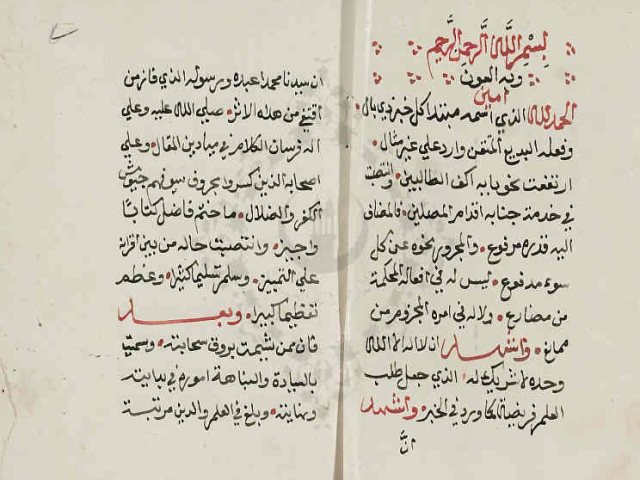 بسم الله الرحمن الرحيم
وبه العون
امين
الحمد لله الذي اسمه مبتدا كل خبر ذي بال
وفعله البديع المتقن وارد علي غير مثال
ارتفعت نحو بابه اكف الطالبين وانتصبت
في خدمة جنابه اقدام المصلين فالمضاف
اليه قدره مرفوع والمجرور نحوه عن كل
سوء مدفوع ليس له في افعاله المحكمة
من مضارع ولا له في امره المجزوم من
ممانع واشهد ان لا اله الا الله
وحده لا شريك له الذي جعل طلب
العلم فريضة كما ورد في الخبر واشهد
ان
ان سيدنا محمدا عبده ورسوله الذي فاز من
اقتفي من هداه الاثر صلي الله عليه وعلي
اله فرسان الكلام في ميادين المقال وعلي
اصحابه الذين كسروا بحروف سيوفهم جيوش
الكفر والضلال ما ختم فاضل كتابا
وا جيز وانتصبت حاله من بين اقرانه
علي التمييز وسلم تسليما كثيرا وعظم
تعظيما كبيرا وبعد
فان ممن شيمت بروق سحابته وسميت
بالسيادة والنباهة اموره في بدايته
ونهايته وبلغ في العلم والدين مرتبة